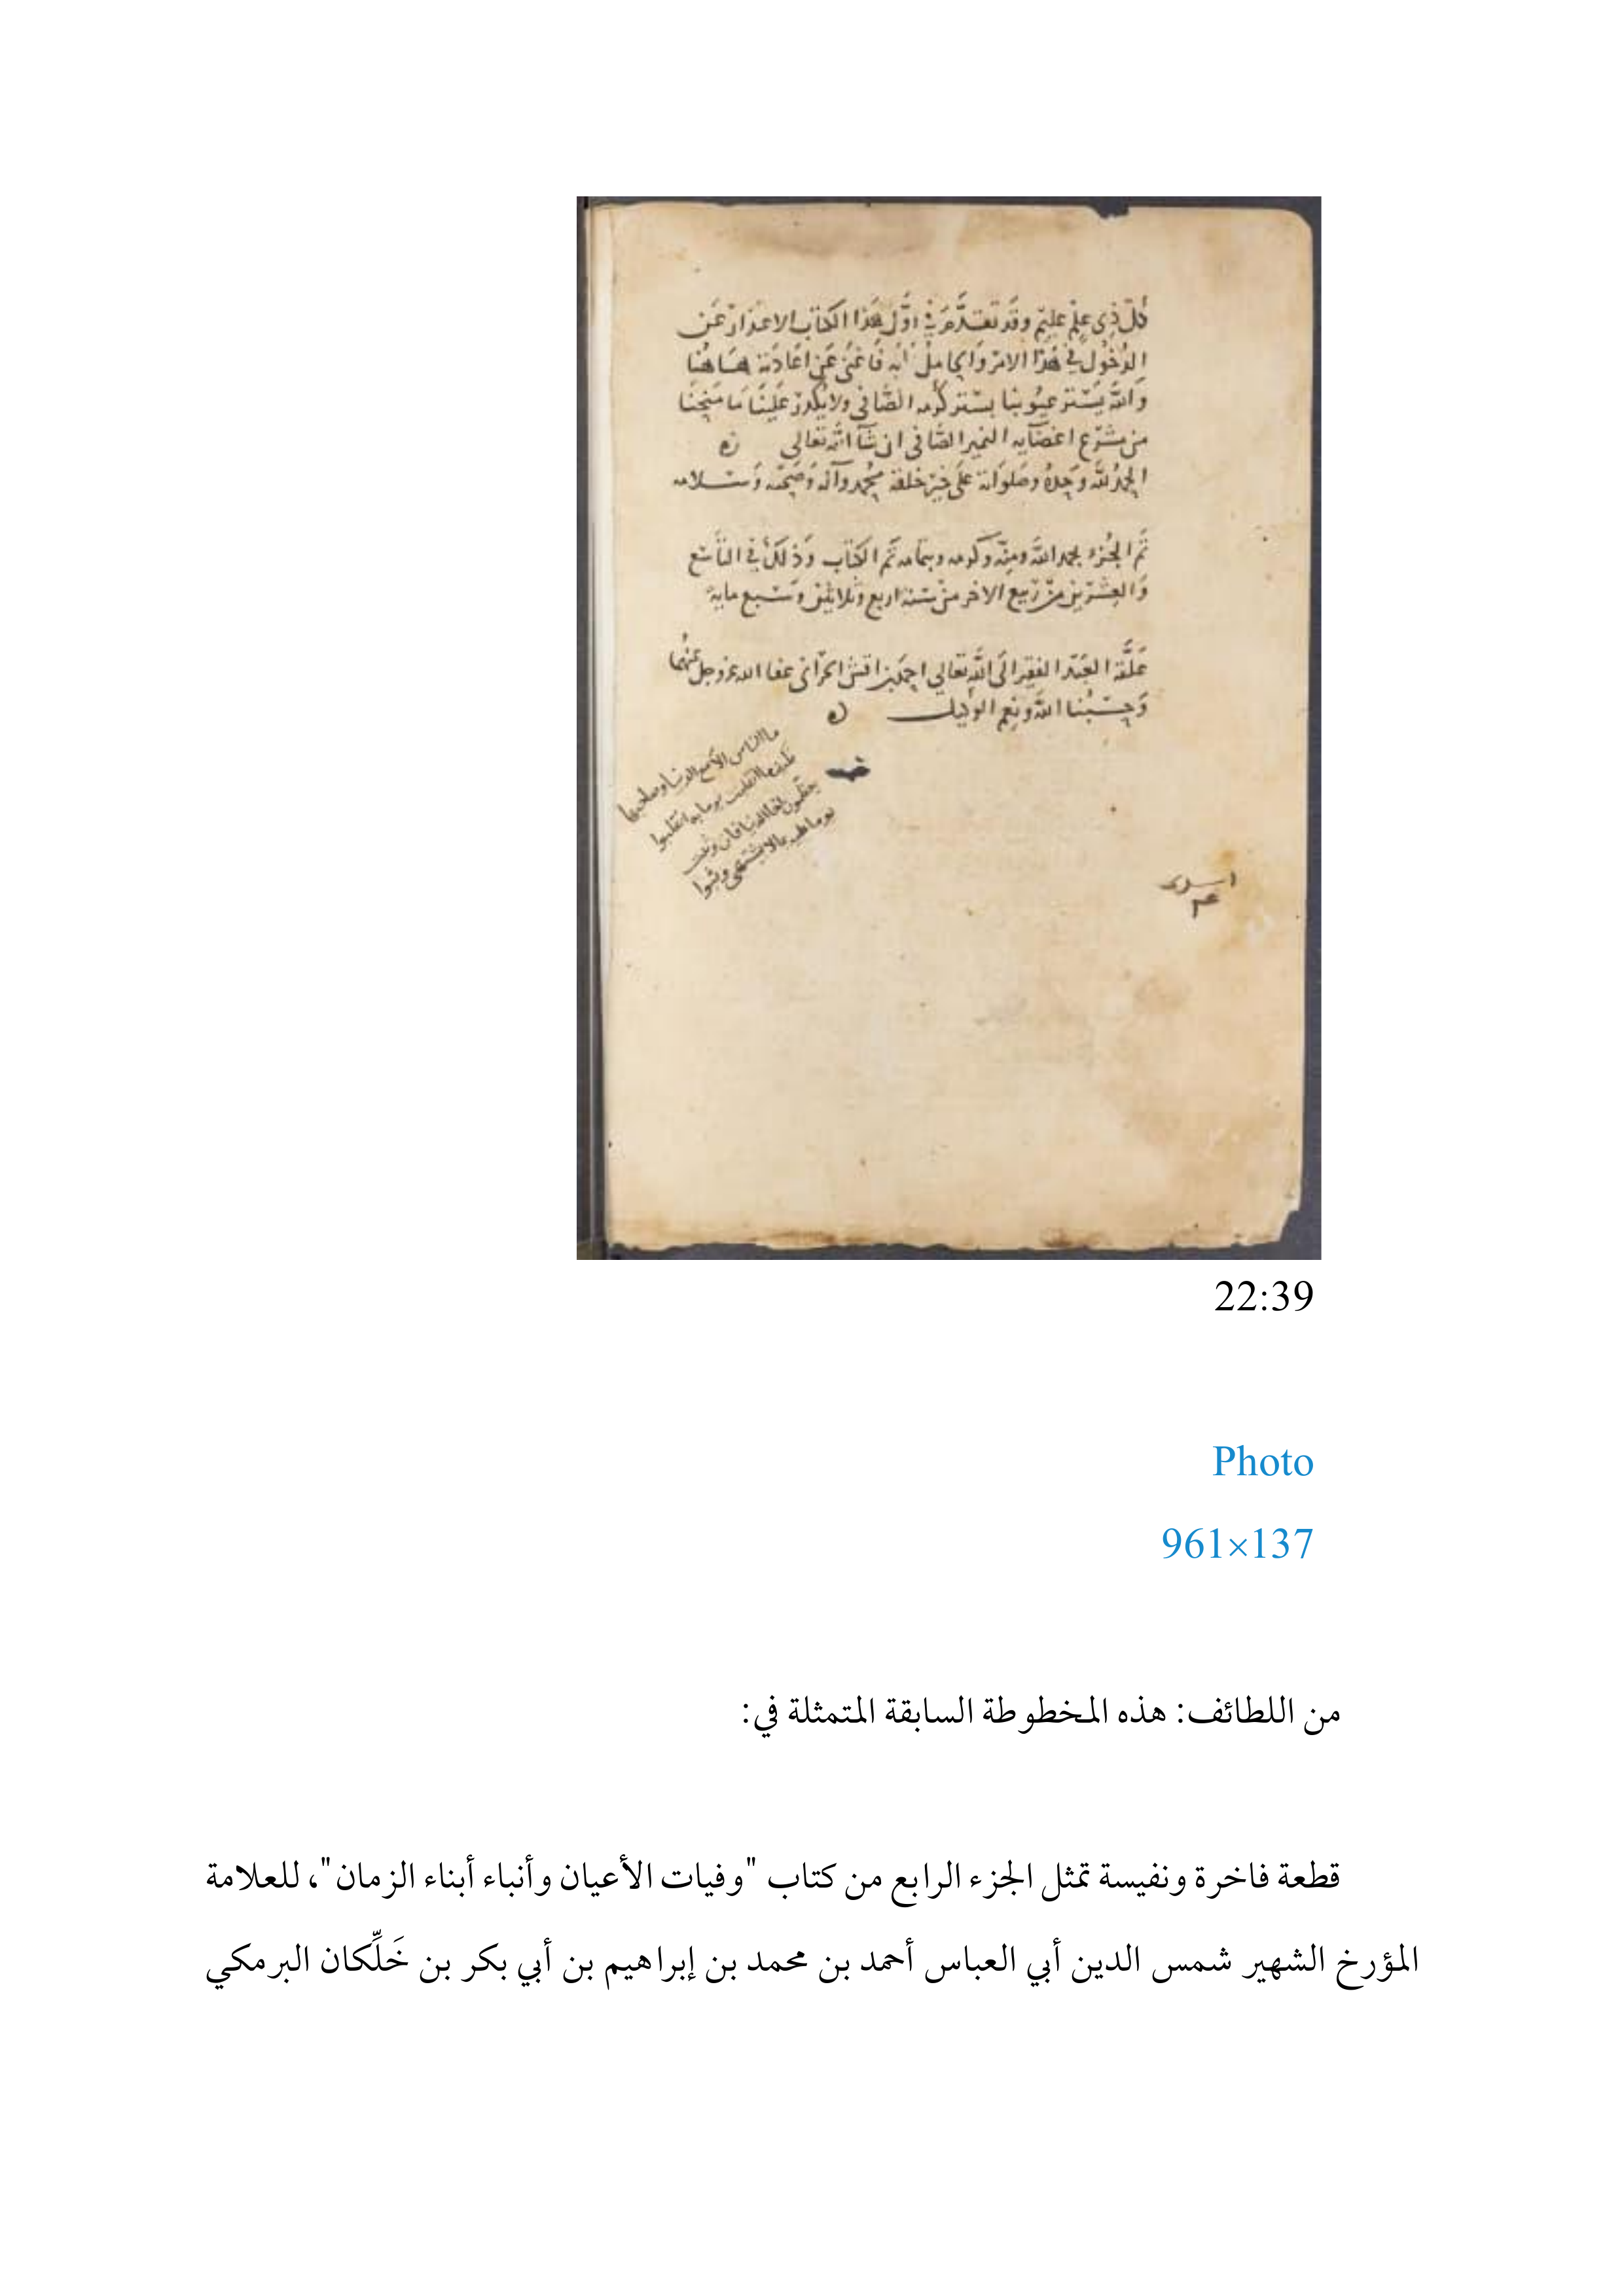 كل ذي علم عليم وقد تقدم في اول هذا الكتاب الاعتذار عن
الدخول في هذا الامر والحامل عليه فاغنى عن اعادته هاهنا
والله يستر عيوبنا بستر كرمه الضافي ولا يكدر علينا ما منحنا
من مشرع اغضايه النمير الصافي ان شا الله تعالى
الحمد لله وحده وصلواته على خير خلقه محمد وآله وصحبه وسلامه
تم الجزء بحمد الله ومنه وكرمه وبتمامه تم الكتاب وذلك في التاسع
والعشرين من ربيع الاخر من سنة اربع وثلاثين وسبع ماية
علقه العبد الفقير الى الله تعالى احمد بن اقش الحراني عفا الله عز وجل عنهما
وحسبنا الله ونعم الوكيل
ما الناس الا مع الدنيا وصاحبها
فكيف ما انقلبت يوما به انقلبوا
يعظمون اخا الدنيا فان وثبت
يوما عليه بما لا يشتهي وثبوا
22:39
Photo
961×137
من اللطائف: هذه المخطوطة السابقة المتمثلة في:
قطعة فاخرة ونفيسة تمثل الجزء الرابع من كتاب "وفيات الأعيان وأنباء أبناء الزمان"، للعلامة
المؤرخ الشهير شمس الدين أبي العباس أحمد بن محمد بن إبراهيم بن أبي بكر بن خَلِّكان البرمكي